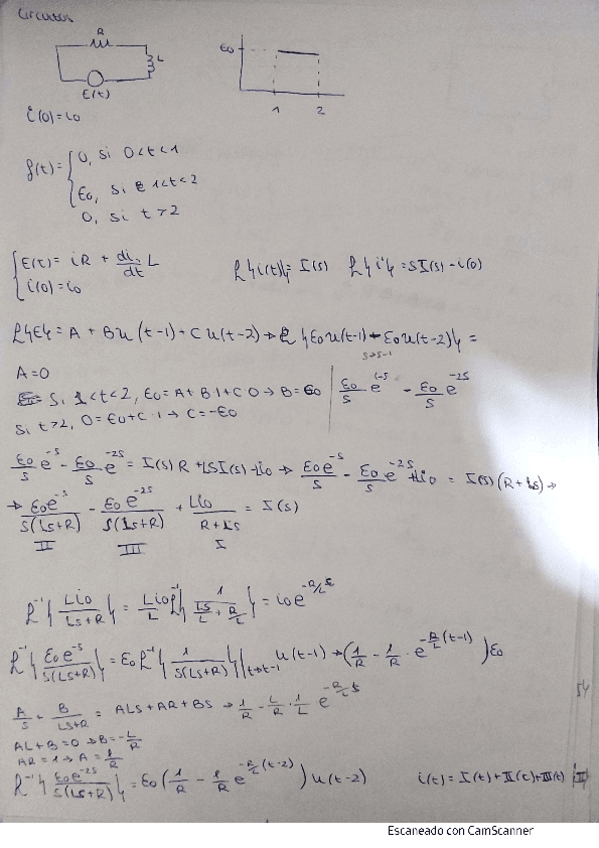 Circuitos
R
L
E(t)
ε0
1 2
i(0)=i0
f(t)= { 0, si 0<t<1
ε0, si 1<t<2
0, si t>2
{ E(t)= iR + di/dt L
i(0)=i0
ℒ{i(t)}= I(s) ℒ{i'}=sI(s)-i(0)
ℒ{E}= A + Bu(t-1)+Cu(t-2) → ℒ{ε0u(t-1)-ε0u(t-2)}=
A=0
si 1<t<2, ε0=A+B·1+C·0 → B=ε0
ε0/s e^-s - ε0/s e^-2s
si t>2, 0=ε0+C·1 → C=-ε0
ε0/s e^-s - ε0/s e^-2s = I(s)R+LsI(s)-Li0 → ε0e^-s/s - ε0/s e^-2s +Li0 = I(s)(R+Ls) →
→ ε0e^-s/s(Ls+R) - ε0e^-2s/s(Ls+R) + Li0/R+Ls = I(s)
II III I
ℒ^-1{Li0/Ls+R} = Li0/L ℒ^-1{1/(Ls/L + R/L)} = i0e^-R/L t
ℒ^-1{ε0e^-s/s(Ls+R)} = ε0ℒ^-1{1/s(Ls+R)}|t→t-1 u(t-1) → (1/R - 1/R · e^-R/L(t-1))ε0
A/s + B/Ls+R = ALs+AR+BS → 1/R - L/R · 1/L e^-R/L t
AL+B=0 → B=-L/R
AR=1 → A=1/R
ℒ^-1{ε0e^-2s/s(Ls+R)} = ε0(1/R - 1/R e^-R/L(t-2))u(t-2)
i(t)=I(t)+II(t)+III(t)
Escaneado con CamScanner